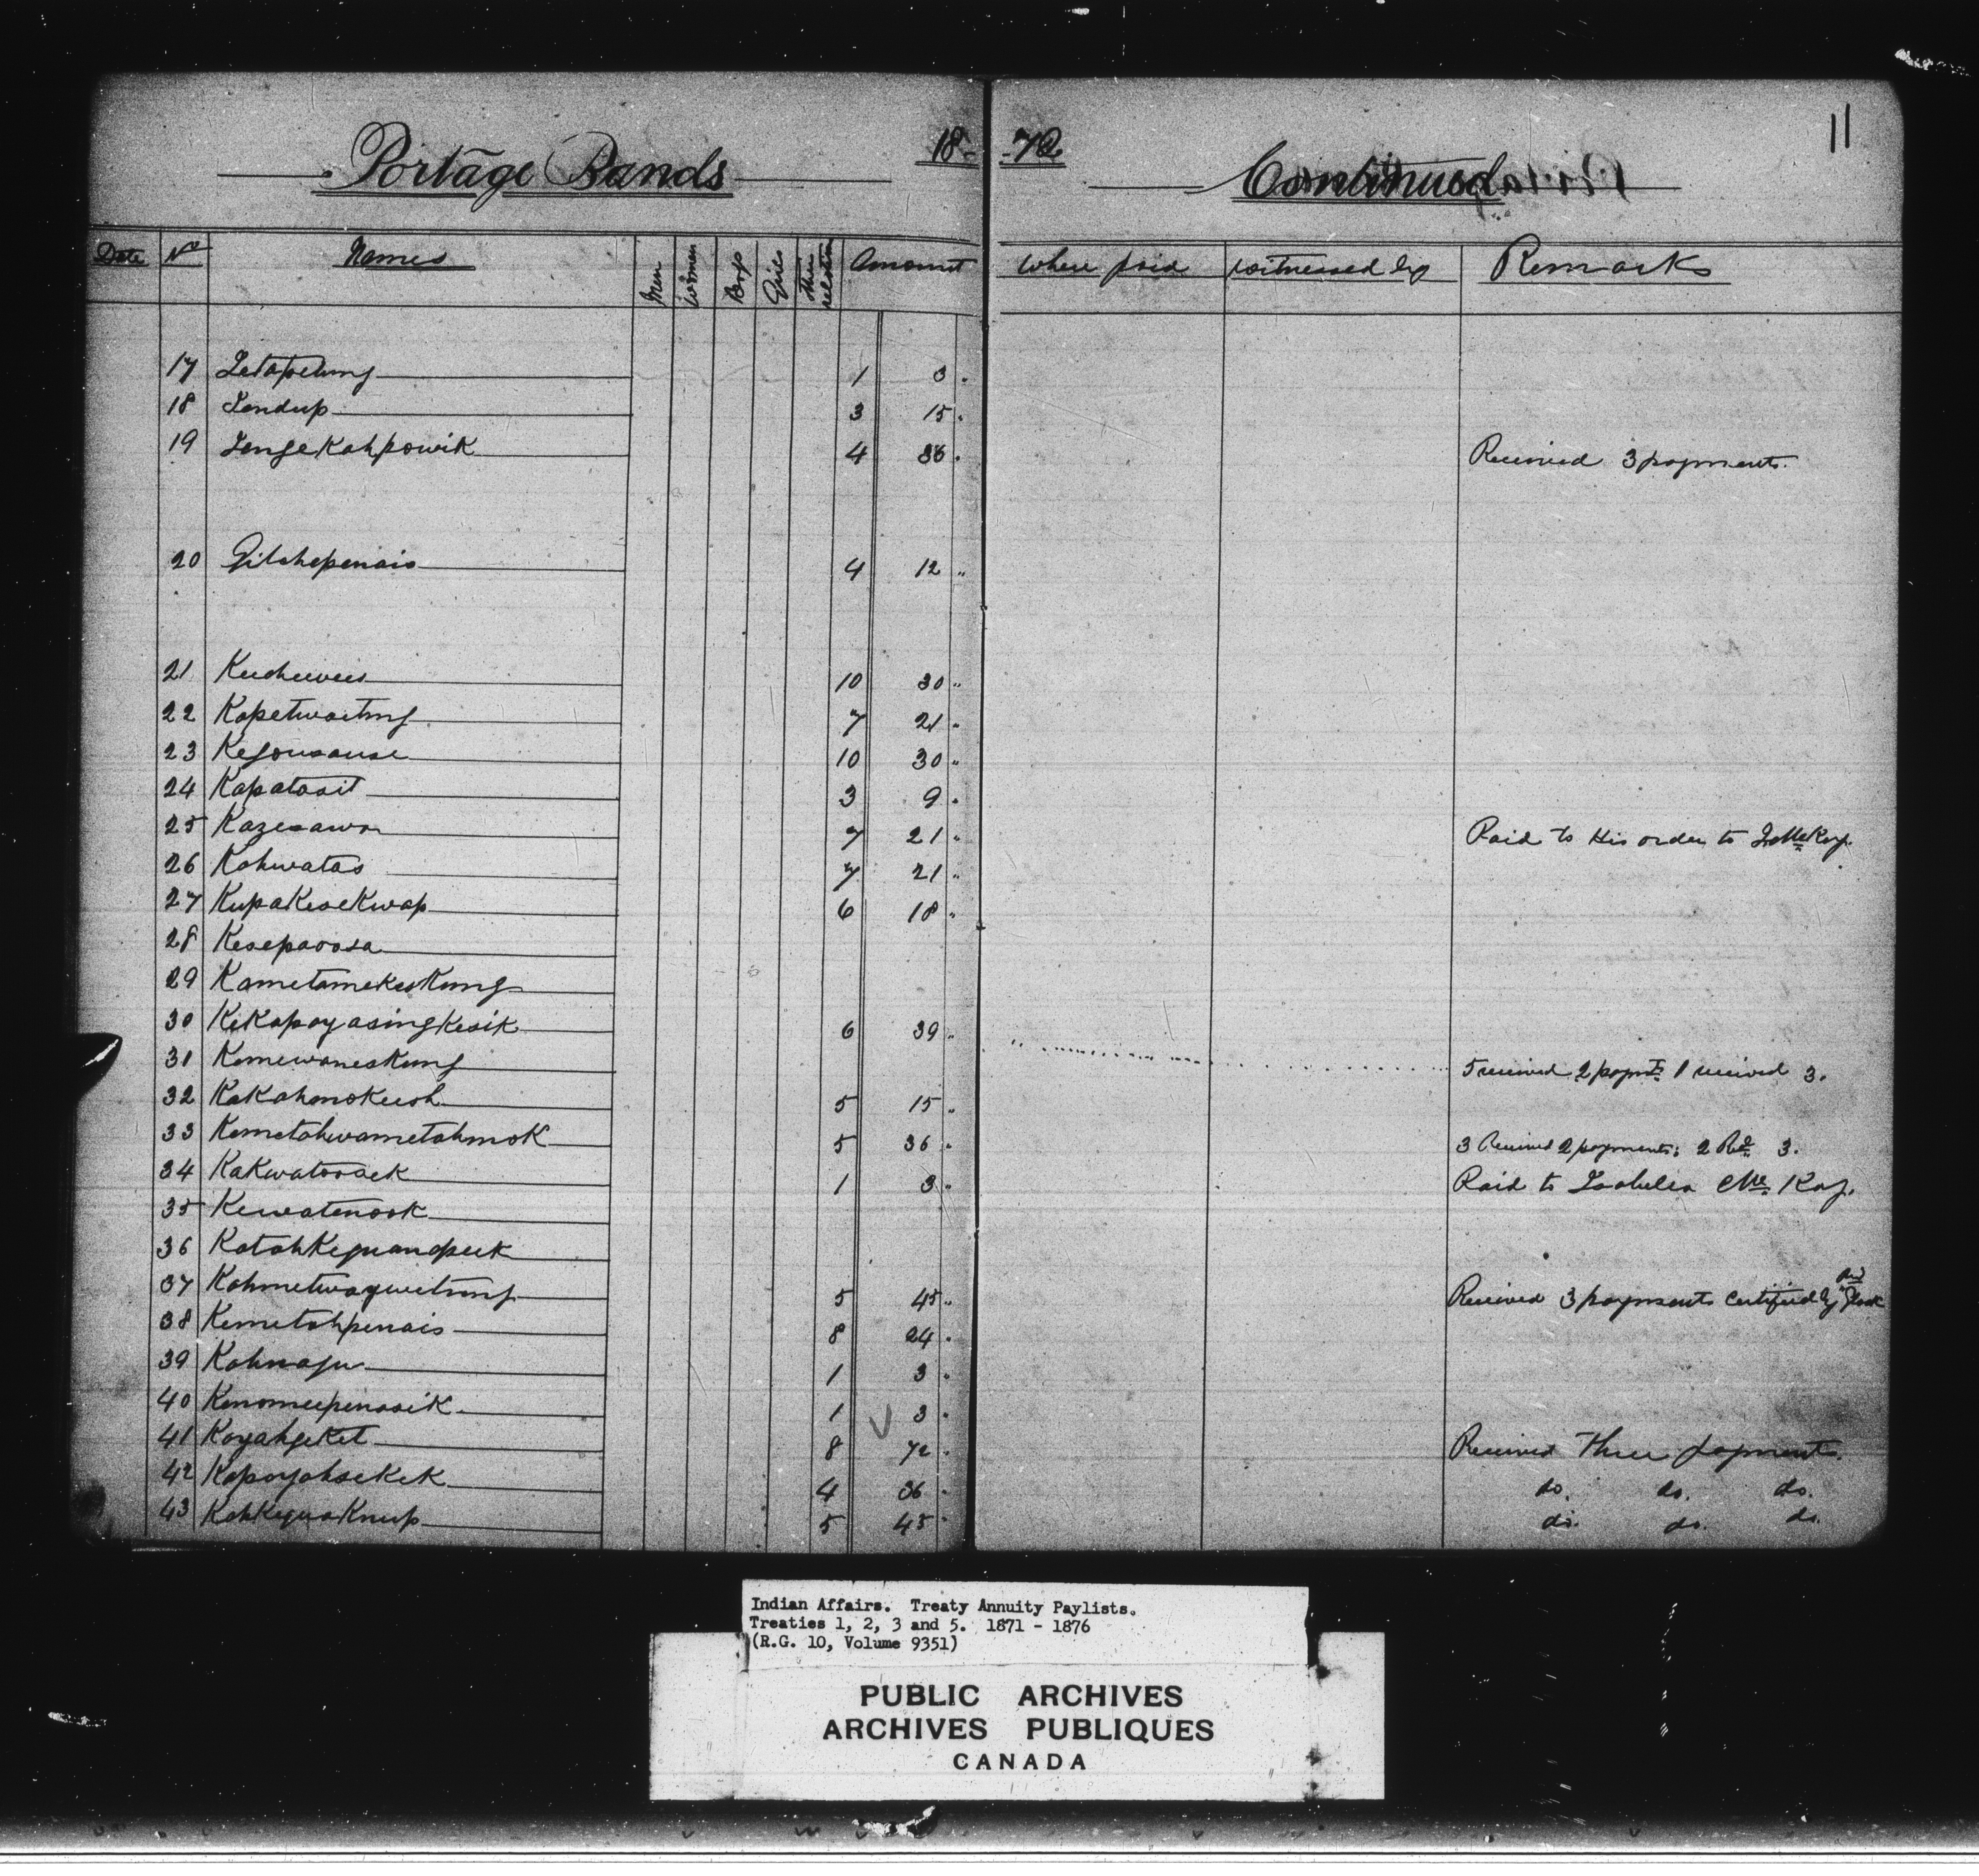 Portage Bands 18-72 Continued 11
Date No Names Men Women Boys Girls Other relations Amount Where paid Witnessed by Remarks
17 Zetapetung 1 3
18 Jendup 3 15
19 Jengekahpowik 4 36 Received 3 payments.
20 Gitchepenais 4 12
21 Kuchewees 10 30
22 Kapetwaetung 7 21
23 Kegousause 10 30
24 Kapatasit 3 9
25 Kazesawa 7 21 Paid to His order to McKay.
26 Kahwatas 7 21
27 Kupakesekwap 6 18
28 Kesepaoosa
29 Kametamekeskung
30 Kekapayasingkesik 6 39
31 Kemewaneskung 5 received 2 paymts 1 received 3.
32 Kakahmokeesh 5 15
33 Kemetahwametahmok 5 36 3 Received 2 payments; 2 Recd 3.
34 Kakwatoosaek 1 3 Paid to Isabella Mc Kay.
35 Kewatenook
36 Katahkequanapeek
37 Kahmetwayweetung 5 45 Received 3 payments certified by
38 Kemetahpenais 8 24
39 Kahnaju 1 3
40 Kenomeepenasik 1 3
41 Koyahgeket 8 72 Received Three payments.
42 Kapayahsekek 4 36 do. do. do.
43 Kahkequaknup 5 45 do. do. do.
Indian Affairs. Treaty Annuity Paylists.
Treaties 1, 2, 3 and 5. 1871 - 1876
(R.G. 10, Volume 9351)
PUBLIC ARCHIVES
ARCHIVES PUBLIQUES
CANADA